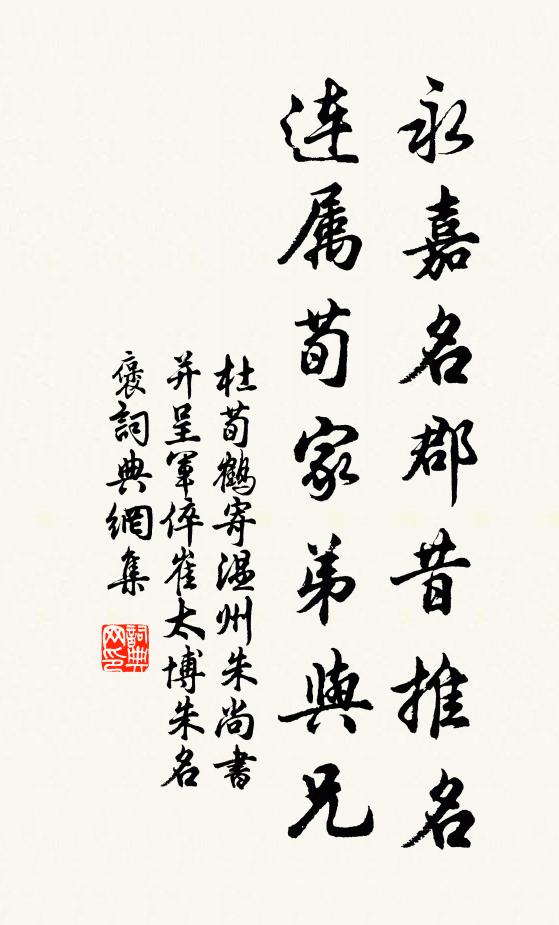 永嘉名郡昔推名
连属荀家弟與兄
杜荀鶴寄温州朱尚書
并呈軍倅崔太博朱名
褒詞典網集
詞典
网印